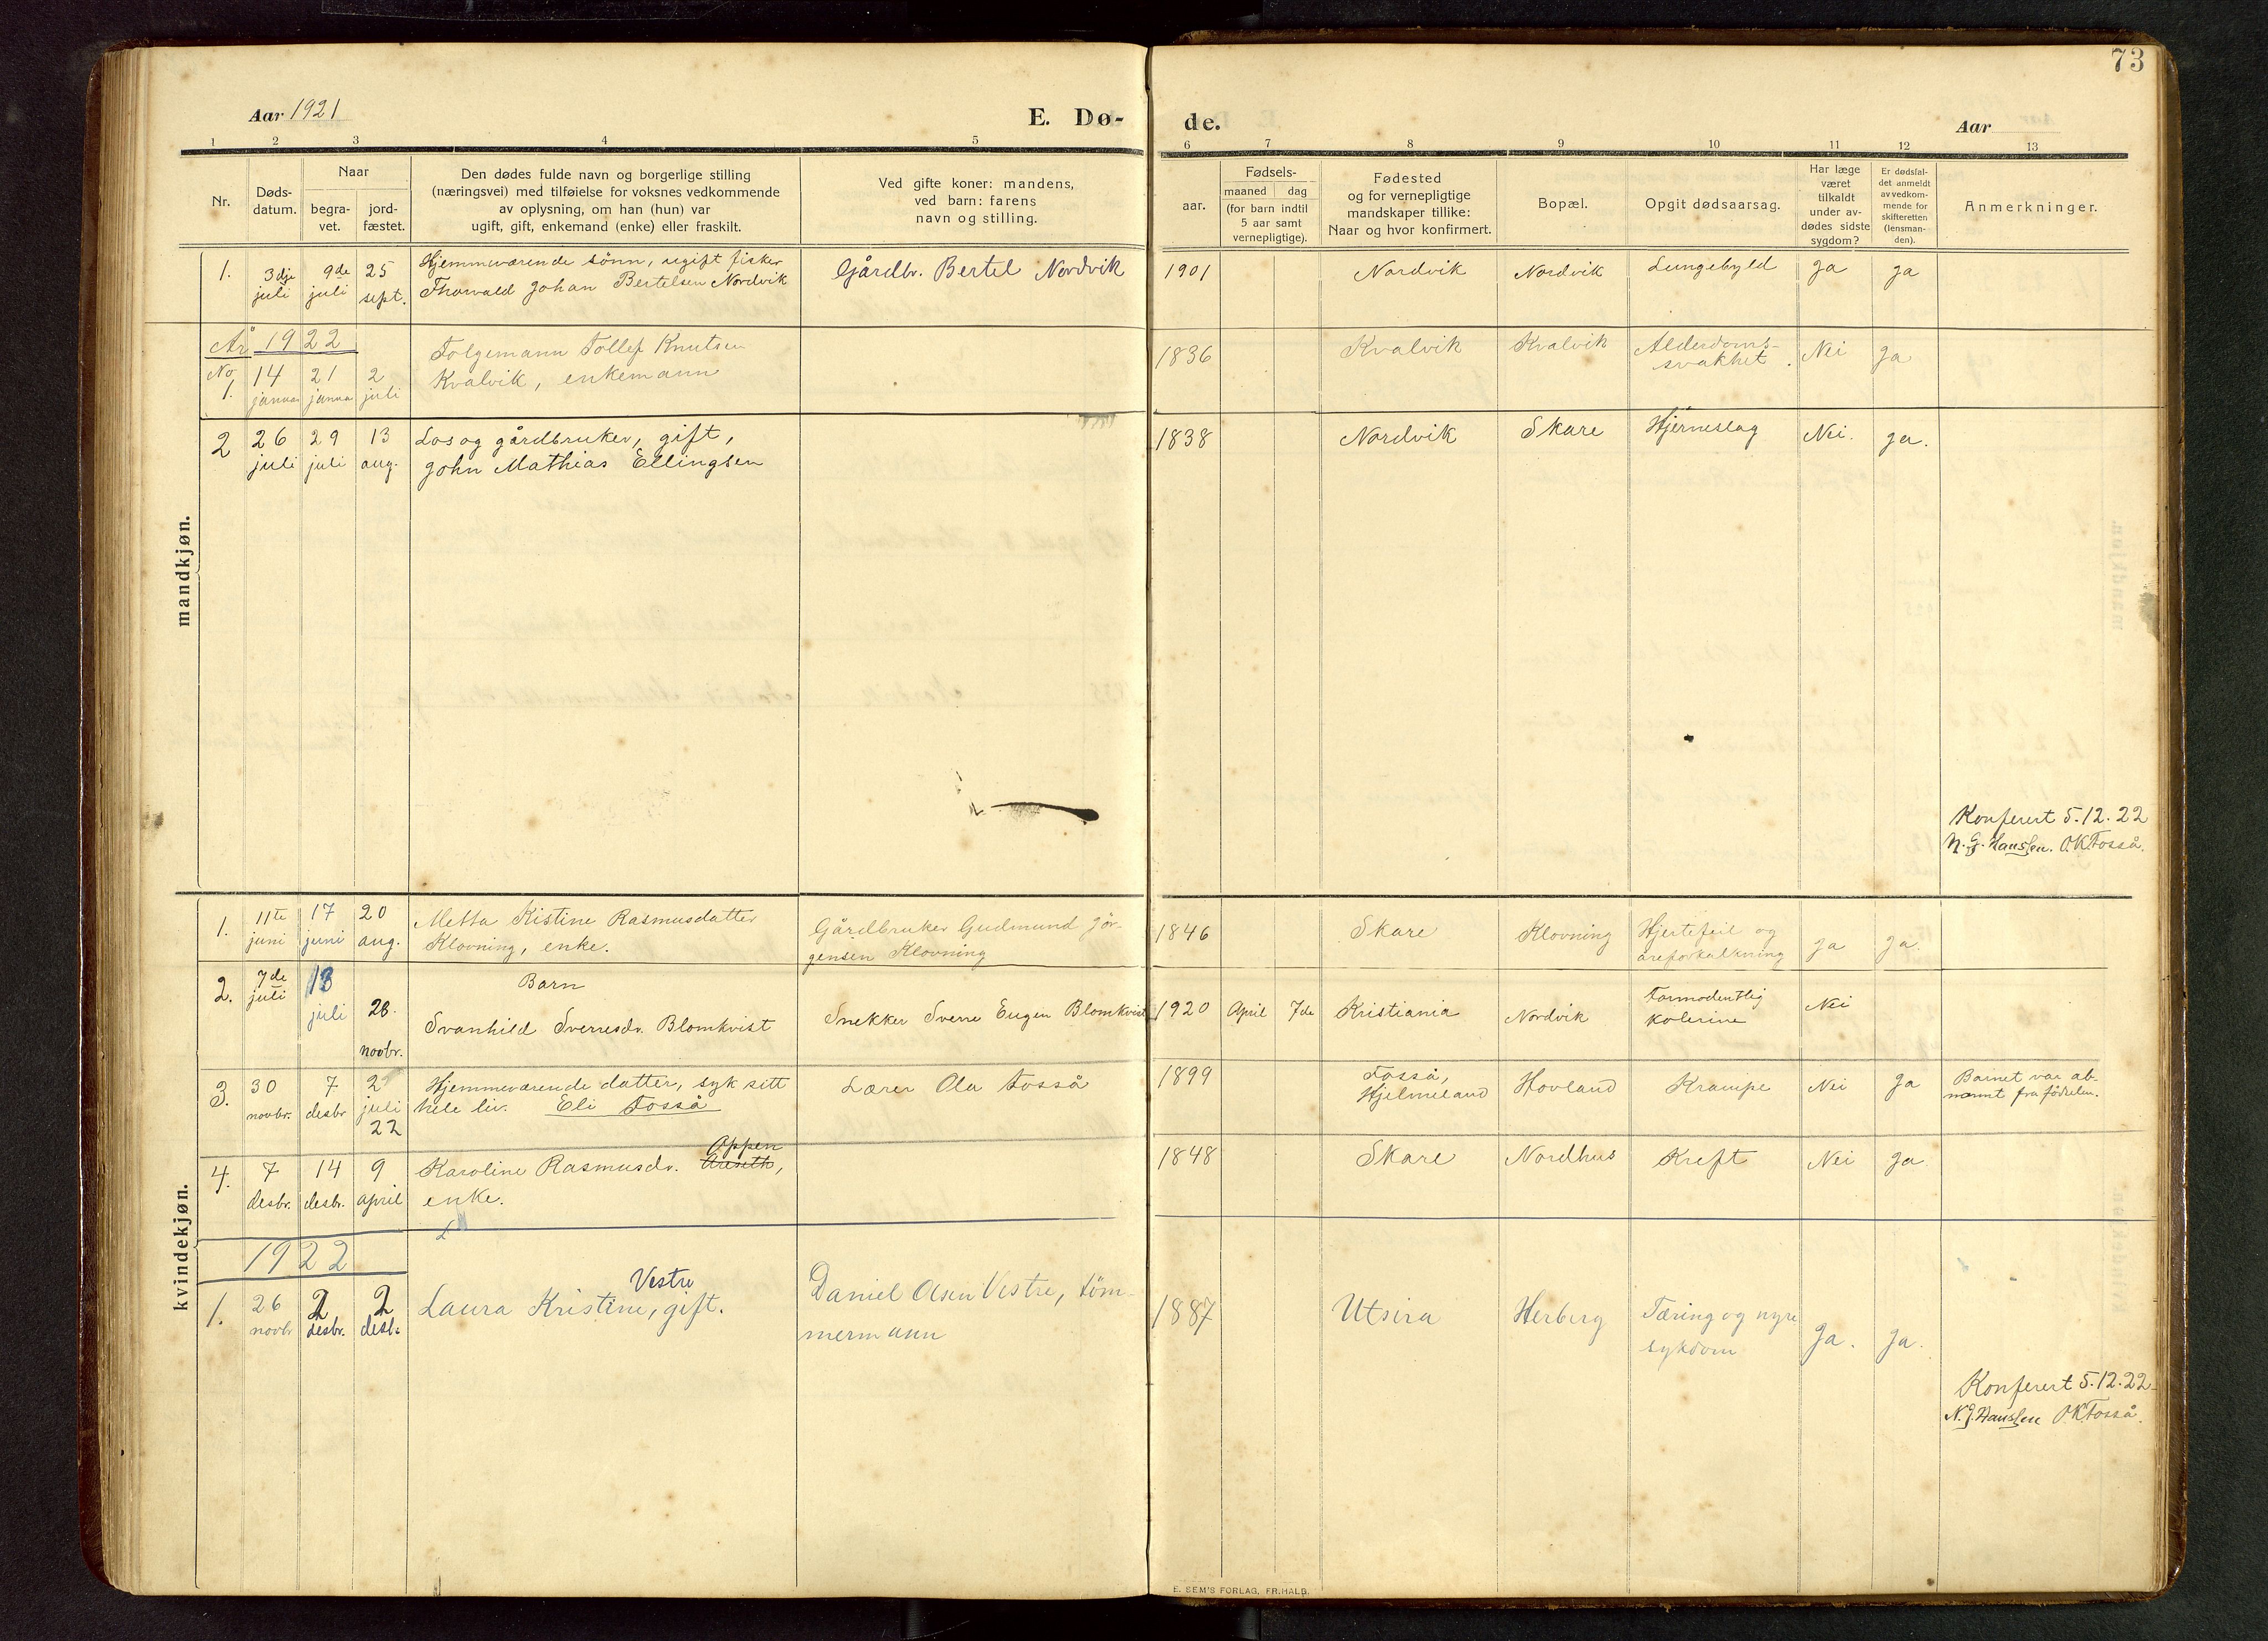 73
Aar 1921
E. Dø-
de.
Aar
1 2 3 4 5 6 7 8 9 10 11 12 13
Nr.
Døds-
datum.
Naar
begra-
vet.
jord-
fæstet.
Den dødes fulde navn og borgerlige stilling
(næringsvei) med tilføielse for voksnes vedkommende
av oplysning, om han (hun) var
ugift, gift, enkemand (enke) eller fraskilt.
Ved gifte koner: mandens,
ved barn: farens
navn og stilling.
aar.
Fødsels-
maaned dag
(for barn indtil
5 aar samt
vernepligtige).
Fødested
og for vernepligtige
mandskaper tillike:
Naar og hvor konfirmert.
Bopæl.
Opgit dødsaarsag.
Har læge
været
tilkaldt
under av-
dødes sidste
sygdom?
Er dødsfal-
det anmeldt
av vedkom-
mende for
skifteretten
(lensman-
den).
Anmerkninger.
mandkjøn.
1. 3dje juli 9de juli 25 sept.
Hjemmeværende sönn, ugift fisker
Thorvald Johan Bertelsen Nordvik
Gårdbr. Bertel Nordvik
1901 Nordvik Nordvik Lungebyld ja ja
År 1922
No 1. 14 januar 21 januar 2 juli
Folgemann Tollef Knutsen
Kvalvik, enkemann
1836 Kvalvik Kvalvik Alderdoms-
svakhet. Nei ja
2 26 juli 29 juli 13 aug.
Los og gårdbruker, gift,
John Mathias Ellingsen
1838 Nordvik Skare Hjerneslag Nei. ja.
Konferert 5.12.22
N. G. Hanssen. O.K.Fosså.
kvindekjøn.
1. 11te juni 17 juni 20 aug.
Metta Kistine Rasmusdatter
Klovning, enke.
Gårdbruker Gudmund Jör-
gensen Klovning
1846 Skare Klovning Hjertefeil og
åreforkalkning ja ja.
2. 7de juli 13 juli 28. novbr.
Barn
Svanhild Sverresdr. Blomkvist
Snekker Sverre Eugen Blomkvist
1920 April 7de Kristiania Nordvik Formodentlig
kolerine Nei
3. 30 novbr. 7 desbr 2 juli 22
Hjemmeværende datter, syk sitt
hele liv. Eli Fosså
Lærer Ola Fosså
1899 Fosså,
Hjelmeland Hovland Krampe Nei ja
Barnet var ab-
normt fra födselen.
4. 7 desbr. 14 desbr. 9 april
Oppen
Karoline Rasmusdr.
enke.
1848 Skare Nordhus Kreft Nei ja
1922
1. 26 novbr 2 desbr. 2 desb.
Vestre
Laura Kristine, gift.
Daniel Olsen Vestre, töm-
mermann
1887 Utsira Herberg Tæring og nyre
sykdom ja. ja.
Konferert 5.12.22
N.G. Hanssen O.K.Fosså.
E. SEM'S FORLAG, FR.HALD.